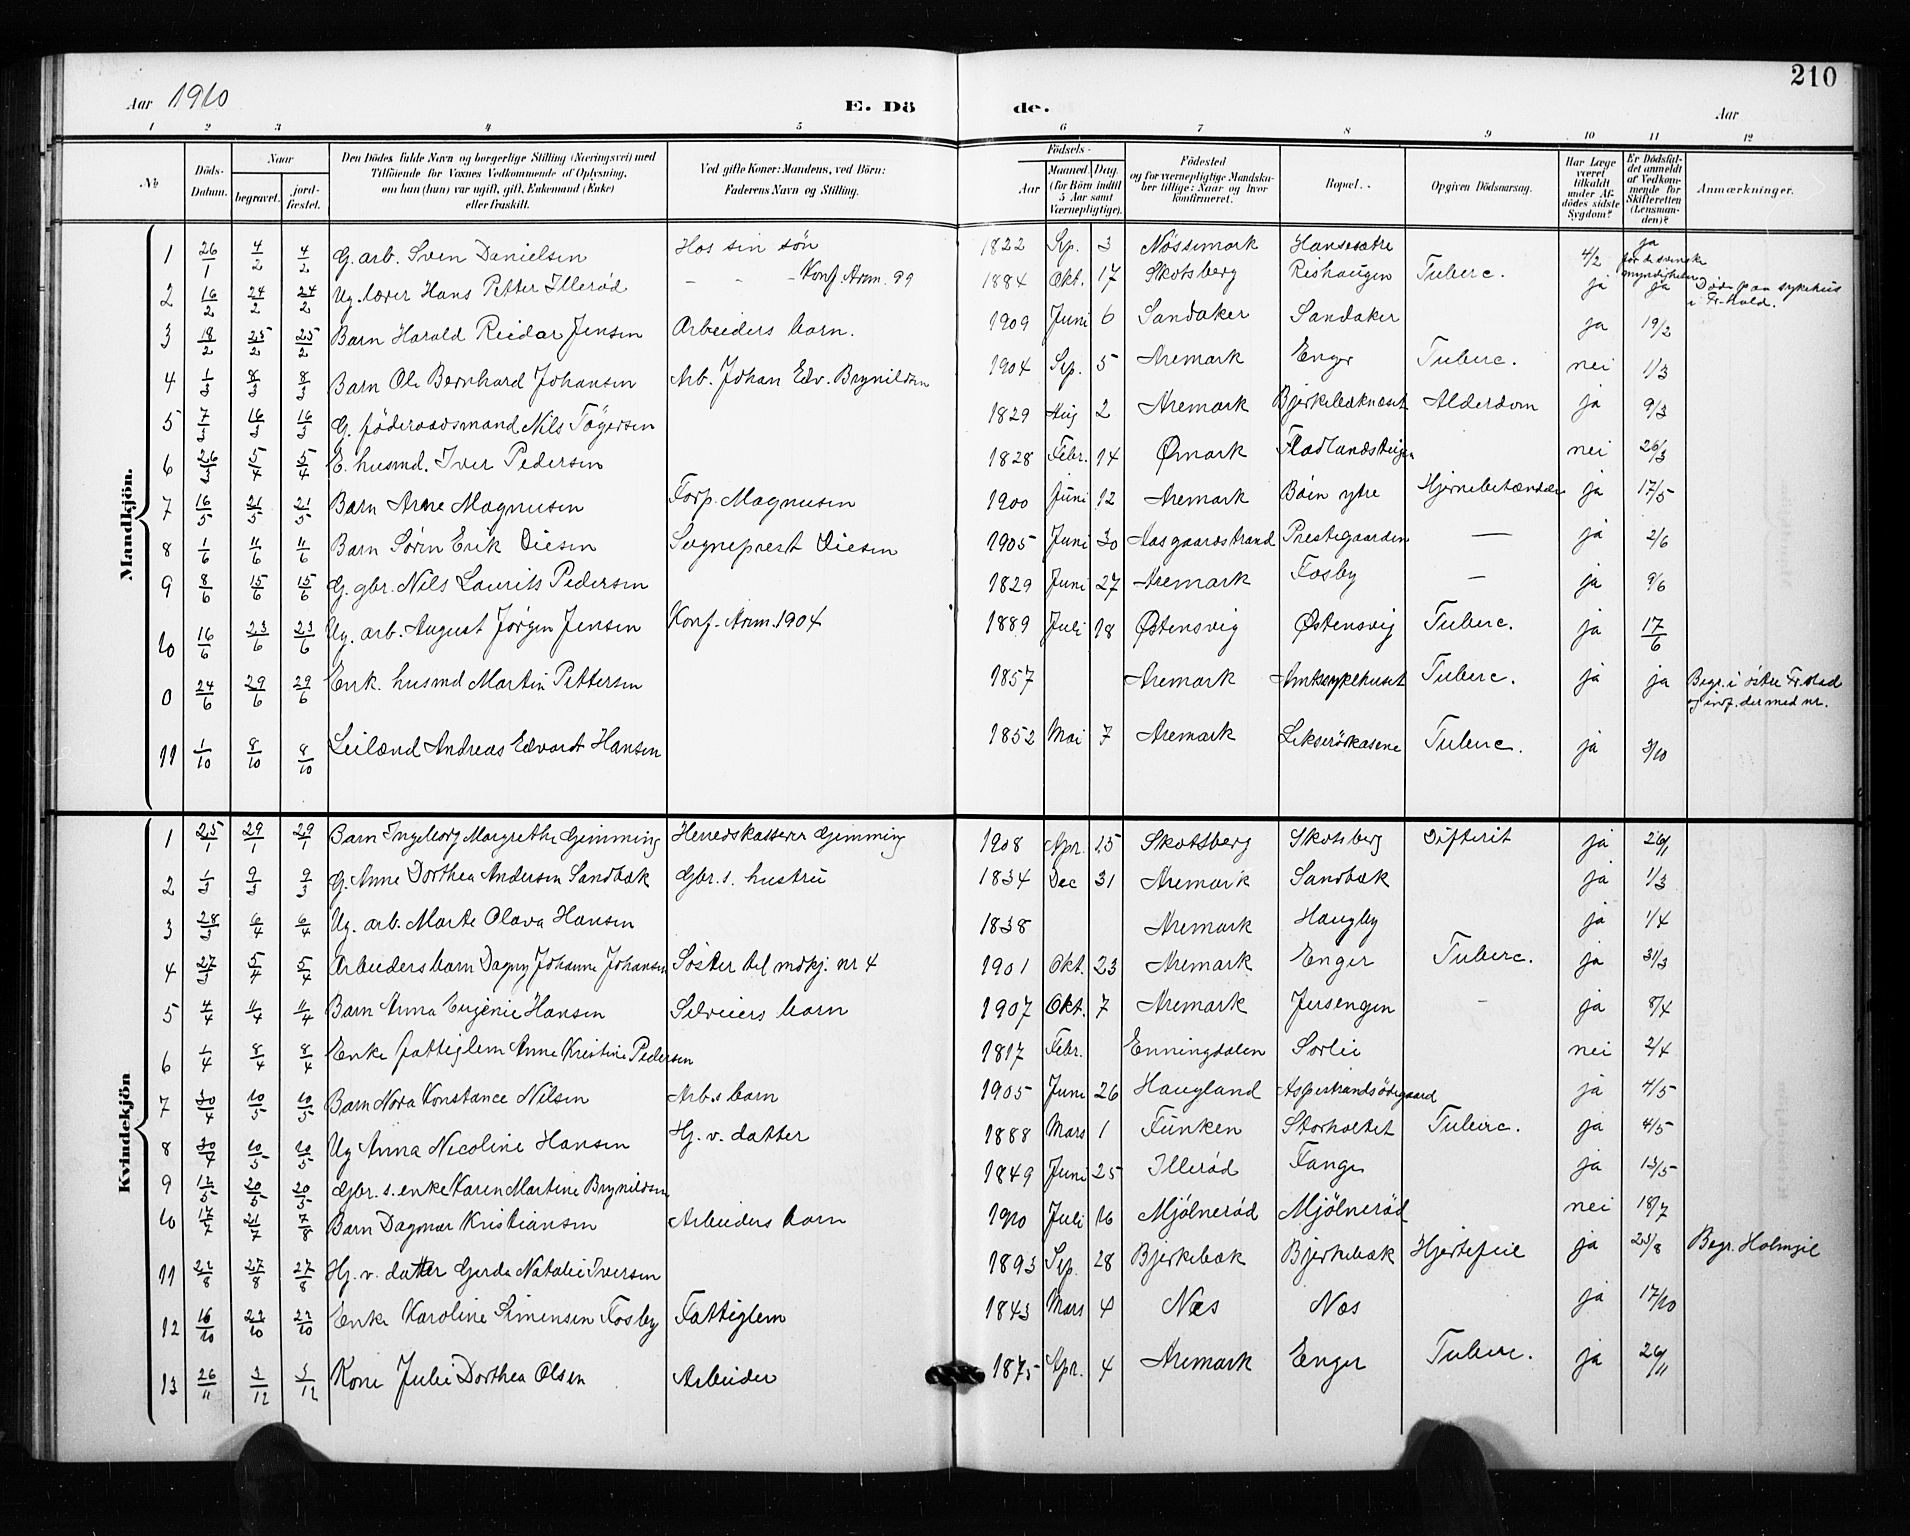 210
Aar 1910 E. Dö de. Aar
1 2 3 4 5 6 7 8 9 10 11 12
No Döds-Datum. Naar begravet. jordfæstet. Den Dödes fulde Navn og borgerlige Stilling (Næringsvei) med Tilföiende for Voxnes Vedkommende af Oplysning, om han (hun) var ugift, gift, Enkemand (Enke) eller fraskilt. Ved gifte Koner: Mandens, ved Börn: Faderens Navn og Stilling. Födsels- Aar Maaned Dag (for Börn indtil 5 Aar samt Værnepligtige). Födested og for værnepligtige Mandskaber tillige: Naar og hvor konfirmeret. Bopæl. Opgiven Dödsaarsag. Har Læge været tilkaldt under Afdödes sidste Sygdom? Er Dödsfaldet anmeldt af Vedkommende for Skifteretten (Lensmanden)? Anmærkninger.
Mandkjön.
1 26/1 4/2 4/2 G. arb. Sven Danielsen Hos sin søn 1822 Sep. 3 Nössemark Hansesætre 4/2 ja for de svenske myndigheter
2 16/2 24/2 24/2 Ug. lærer Hans Petter Illerød - - Konf. Arem. 99 1884 Okt. 17 Skotsberg Rishaugen Tuberc. ja ja Død paa sykehus i Fr.hald.
3 18/2 25/2 25/2 Barn Harald Reidar Jensen Arbeiders barn. 1909 Juni 6 Sandaker Sandaker ja 19/2
4 1/3 8/3 8/3 Barn Ole Bernhard Johansen Arb. Johan Edv. Brynildsen 1904 Sep. 5 Aremark Enger Tuberc. nei 1/3
5 7/3 16/3 16/3 G. föderaadsmand Nils Tögersen 1829 Aug 2 Aremark Bjerkebæknæset Alderdom ja 9/3
6 26/3 5/4 5/4 E. husmd. Iver Pedersen 1828 Febr. 14 Ømark Fladlandsteigen nei 26/3
7 16/5 21/5 21/5 Barn Arne Magnusen Forp. Magnusen 1900 Juni 12 Aremark Böen ytre Hjernebetændelse ja 17/5
8 1/6 11/6 11/6 Barn Sören Erik Diesen Sogneprest Diesen 1905 Juni 30 Aasgaardstrand Prestegaarden — ja 2/6
9 8/6 15/6 15/6 G. gbr. Nils Laurits Pedersen 1829 Juni 27 Aremark Fosby — ja 9/6
10 16/6 23/6 23/6 Ug. arb. August Jørgen Jensen Konf. Arem. 1904 1889 Juli 18 Østensvig Østensvig Tuberc. ja 17/6
0 24/6 29/6 29/6 Enk. husmd Martin Pettersen 1857 Aremark Amtssykehuset Tuberc. ja ja Begr. i östre Fr.stad og indf. der med nr.
11 1/10 8/10 8/10 Leilænd Andreas Edvardt Hansen 1852 Mai 7 Aremark Tuberc. ja 3/10
Kvindekjön
1 25/1 29/1 29/1 Barn Ingeborg Margrethe Gjemming Herredskasserer Gjemming 1908 Apr. 15 Skotsberg Skotsberg Difterit ja 26/1
2 1/3 9/3 9/3 G. Anne Dorthea Andersen Sandbæk Gbr.s. hustru 1834 Dec 31 Aremark Sandbæk ja 1/3
3 28/3 6/4 6/4 Ug. arb. Marte Olava Hansen 1838 Aremark Haugby ja 1/4
4 27/3 5/4 5/4 Arbeiders barn Dagny Johanne Johansen Söster til mdkj. nr 4 1901 Okt. 23 Aremark Enger Tuberc. ja 31/3
5 4/4 11/4 11/4 Barn Anna Eugenie Hansen Selveiers barn 1907 Okt. 7 Aremark Jersengen - ja 8/4
6 1/4 8/4 8/4 Enke fattiglem Anne Kristine Pedersen 1817 Febr. Enningdalen Sorlie nei 2/4
7 30/4 10/5 10/5 Barn Nora Konstance Nilsen Arb.s barn 1905 Juni 26 Haugland Aspestrandsödegaard ja 4/5
8 30/4 10/5 10/5 Ug Anna Nicoline Hansen Hj. v. datter 1888 Mars 1 Funken Storholtet Tuberc. ja 4/5
9 12/5 20/5 20/5 Gbr. s. enke Karen Martine Brynildsen 1849 Juni 25 Illerød Tange ja 13/5
10 17/7 21/7 7/8 Barn Dagmar Kristiansen Arbeiders barn 1910 Juli 16 Mjölnerød Mjölnerød nei 18/7
11 22/8 27/8 27/8 Hj. v. datter Gerda Natalie Iversen 1893 Sep. 28 Bjerkebæk Bjerkebæk Hjertefeil ja 23/8 Begr. Holmgil
12 16/10 22/10 22/10 Enke Karoline Simensen Fosby Fattiglem 1843 Mars 4 Næs Næs ja 17/10
13 26/11 3/12 3/12 Kone Julie Dorthea Olsen Arbeider 1875 Apr. 4 Aremark Enger Tuberc. ja 26/11